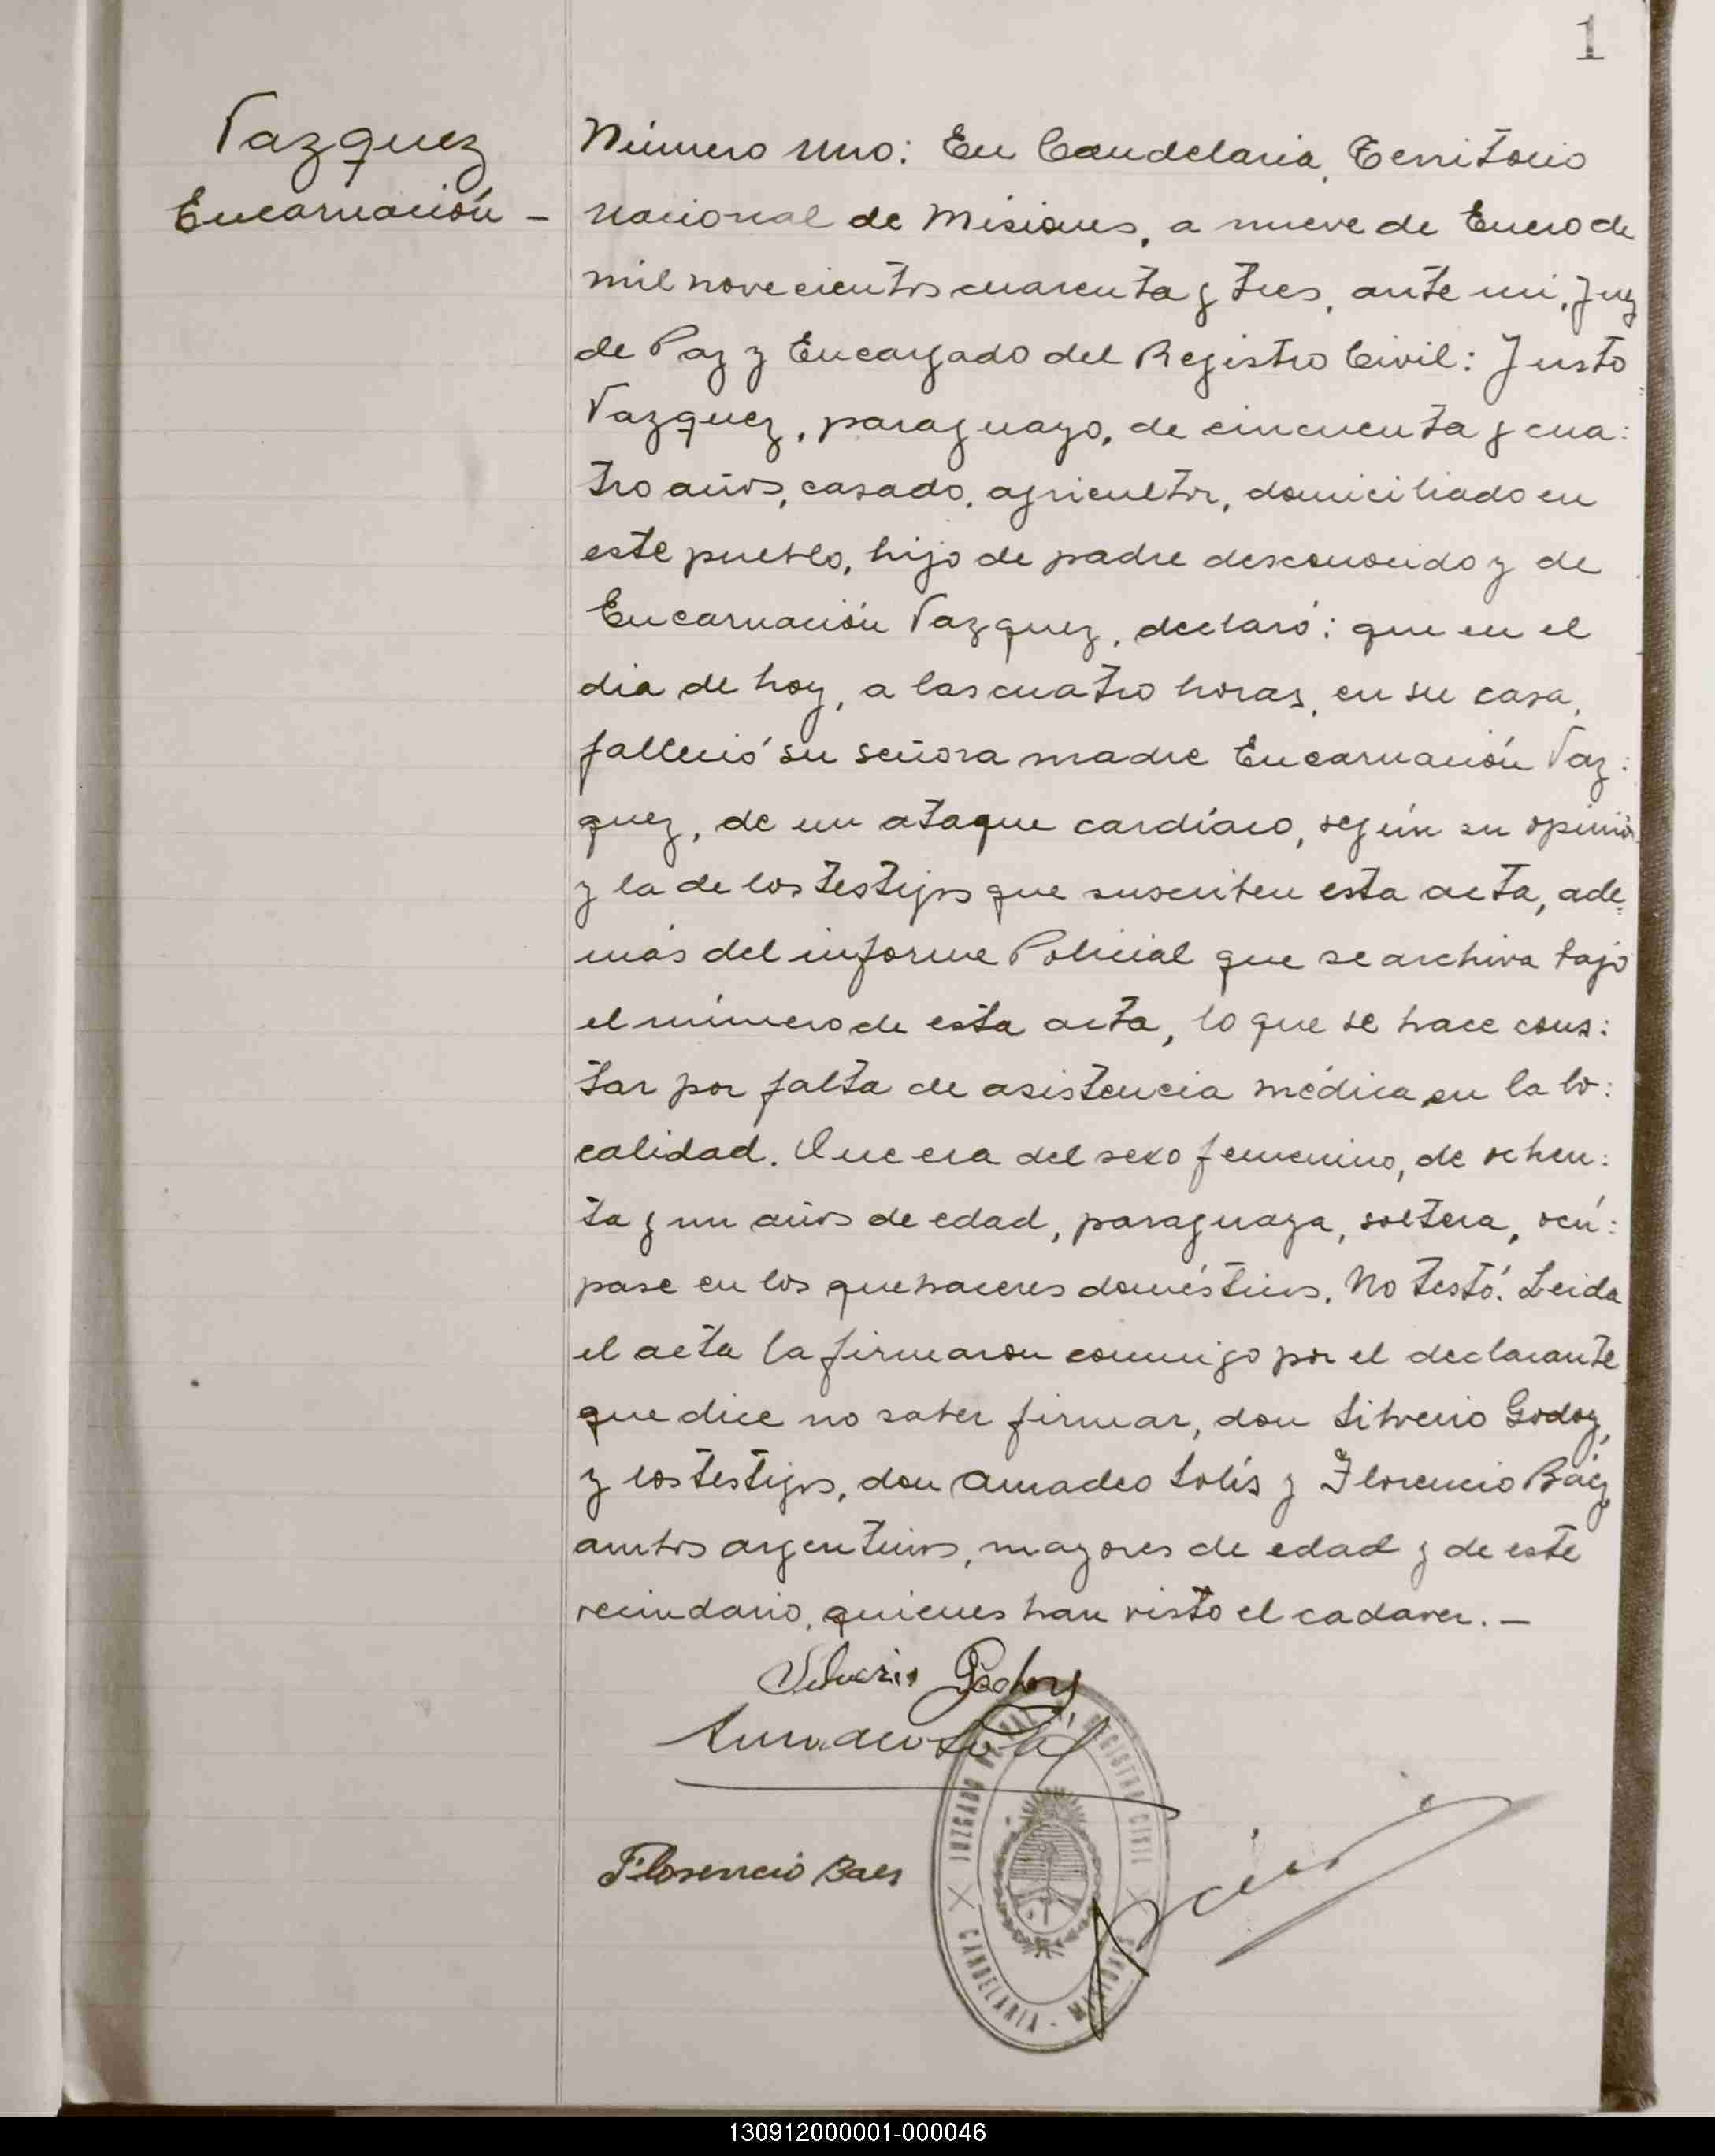 1
Vazquez
Encarnación -
Número uno: En Candelaria, Territorio
nacional de Misiones, a nueve de Enero de
mil novecientos cuarenta y tres, ante mi, Juez
de Paz y Encargado del Registro Civil: Justo
Vazquez, paraguayo, de cincuenta y cua:
tro años, casado, agricultor, domiciliado en
este pueblo, hijo de padre desconocido y de
Encarnación Vazquez, declaró: que en el
dia de hoy, a las cuatro horas, en su casa,
falleció su señora madre Encarnación Vaz:
quez, de un ataque cardíaco, según su opinión
y la de los testigos que suscriben esta acta, ade=
más del informe Policial que se archiva bajo
el número de esta acta, lo que se hace cons:
tar por falta de asistencia médica en la lo:
calidad. Que era del sexo femenino, de ochen:
ta y un años de edad, paraguaya, soltera, ocú:
pase en los quehaceres domésticos. No testó. Leida
el acta la firmaron conmigo por el declarante
que dice no saber firmar, don Silverio Godoy,
y los testigos, don Amadeo Solís y Florencio Báez,
ambos argentinos, mayores de edad y de este
vecindario, quienes han visto el cadaver. —
Silverio Godoy
Amadeo Solís
Florencio Baes
JUZGADO DE PAZ Y REGISTRO CIVIL
CANDELARIA - MISIONES
130912000001-000046